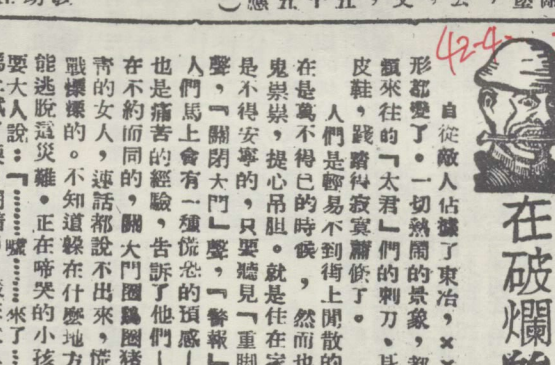 42-4-
在破爛
自從敵人佔據了東冶，××
形都變了。一切熱鬧的景象，都
來往的『太君』們的刺刀、
皮鞋，踐踏得寂寞蕭條了。
人們是輕易不到街上閒散的
在是萬不得已的時候，然而也
鬼祟祟，提心吊胆。就是住在家
是不得安寧的，只要聽見『重脚
聲，『關閉大門』聲，『警報』
人們馬上會有一種慌恐的預感—
也是痛苦的經驗，告訴了他們—
在不約而同的，關大門圈鷄圈猪
青的女人，連話都說不出來，慌
戰慄慄的。不知道躲在什麼地方
能逃脫這災難。正在啼哭的小孩
要大人說：『………噓………來了